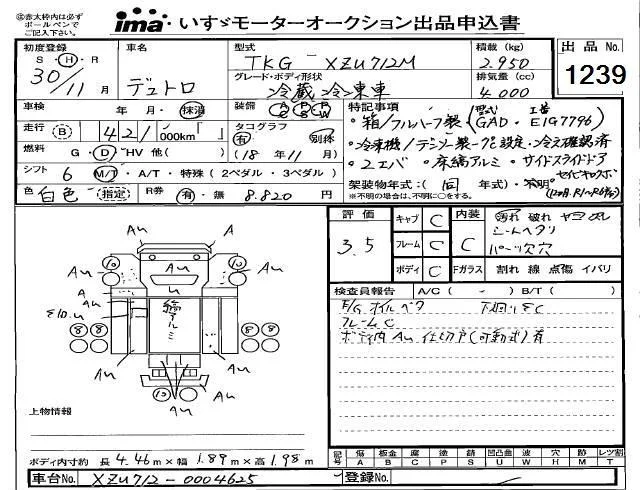 ㊟赤太枠内は必ず
ボールペンで
ご記入下さい。
ima いすゞモーターオークション出品申込書
初度登録 車名 型式 積載 (kg) 出品 No.
S・H・R 30/11月 デュトロ TKG-XZU712M 2.950 1239
グレード・ボディ形状 排気量 (cc)
冷蔵冷凍車 4.000
車検 年・月・抹消 装備 AC PS PW 特記事項
・箱/フルハーフ製(型式 GAD- 工番 E1G7796)
走行 B 421,000km「 」 タコグラフ 有 別体
・冷凍機/デンソー製 設定・冷え確認済
燃料 G・D・HV 他( ) (18年11月)
・2エバ ・床縞アルミ ・サイドスライドドア
シフト 6 M/T・A/T・特殊(2ペダル・3ペダル)
架装物年式:(同 年式)・不明
※不明の場合は、不明に○をする。
色 白色 指定 R券 有・無 8.820円
評価 3.5
キャブ C 内装 C 汚れ 破れ ヤニ
シートヘタリ
フレーム C パーツ欠穴
ボディ C Fガラス 割れ 線 点傷 イバリ
検査員報告 A/C( - ) B/T( )
E/G オイルベタ 下廻りEC
フレームC
ボディ内 Au 仕切戸(可動式)有
A A
Au
10 10
Au Au
A A
縞アルミ
8 8 8 8
Au Au
Au
10
Au
上物情報
ボディ内寸約 長 4.46m×幅 1.89m×高 1.98m
記号 傷 板金 腐 塗 錆 凹凸曲 波 穴 跡 レツ割
A B C P S U W H M T
車台No. XZU712-0004625 登録No.